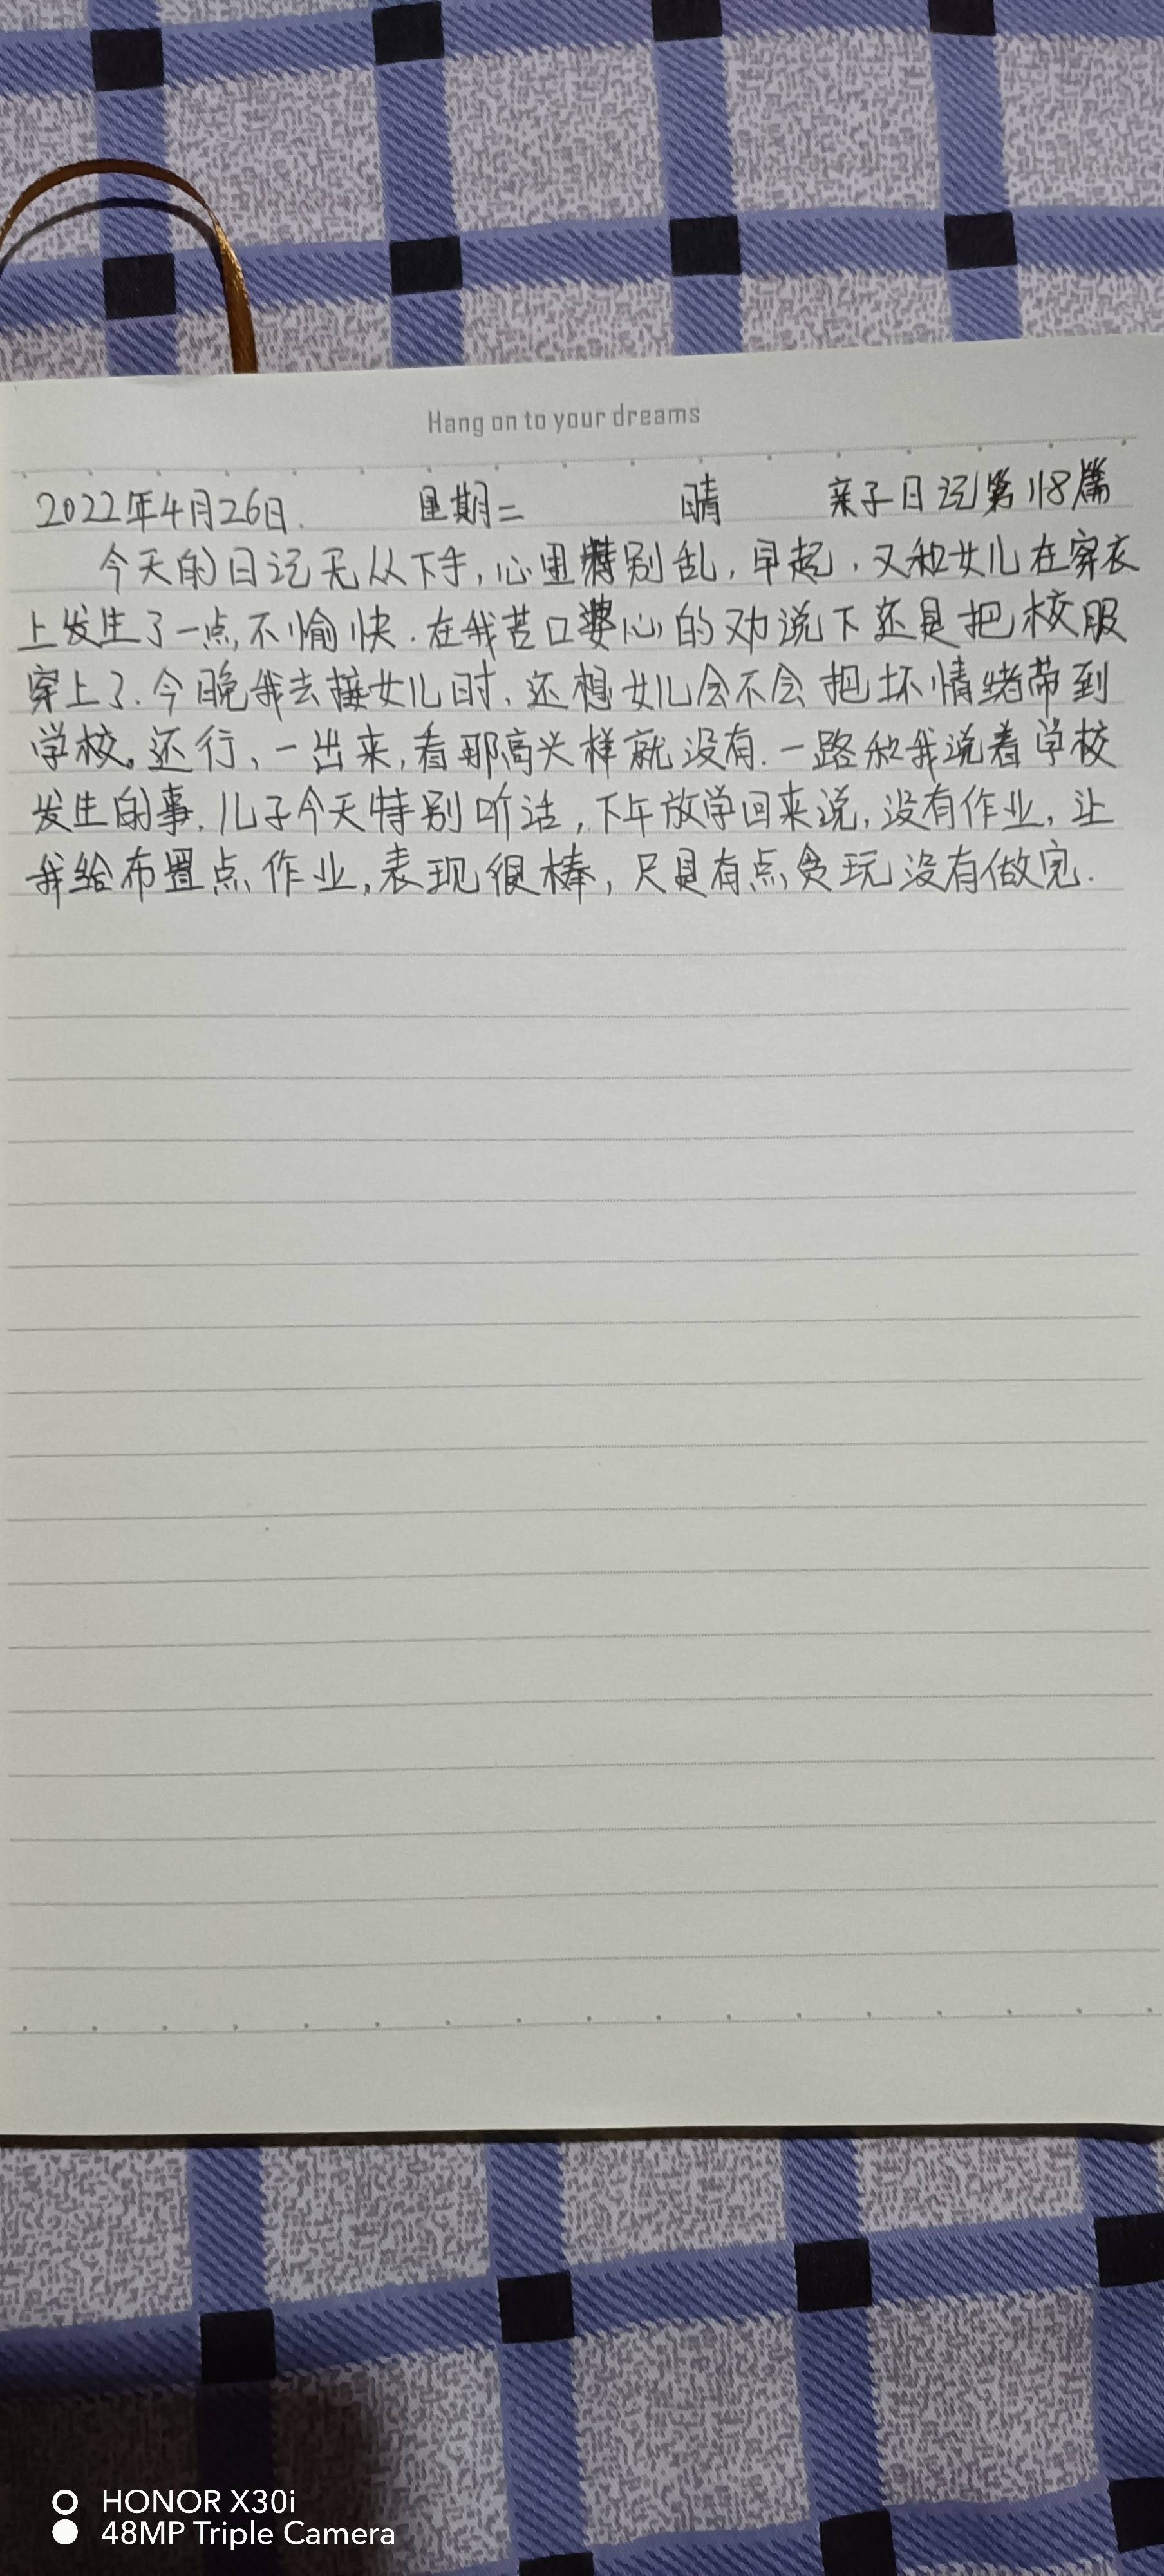 Hang on to your dreams
2022年4月26日. 星期二 晴 亲子日记第118篇
今天的日记无从下手,心里特别乱,早起,又和女儿在穿衣
上发生了一点不愉快.在我苦口婆心的劝说下还是把校服
穿上了.今晚我去接女儿时,还想女儿会不会把坏情绪带到
学校。还行,一出来,看那高兴样就没有.一路和我说着学校
发生的事.儿子今天特别听话,下午放学回来说,没有作业,让
我给布置点作业,表现很棒,只是有点贪玩没有做完.
HONOR X30i
48MP Triple Camera